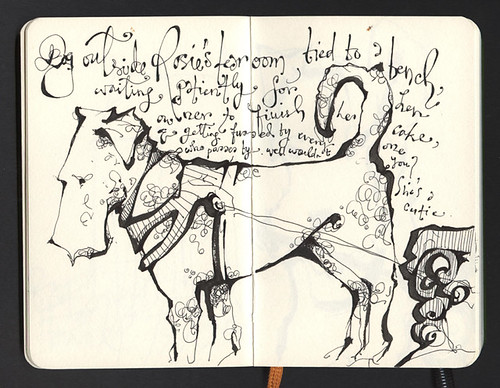 Dog outside Rosie's tearoom tied to a bench,
waiting patiently for her
owner to finish her cake,
& getting fussed by every one
who passes by. well wouldn't you?
She's a
cutie.